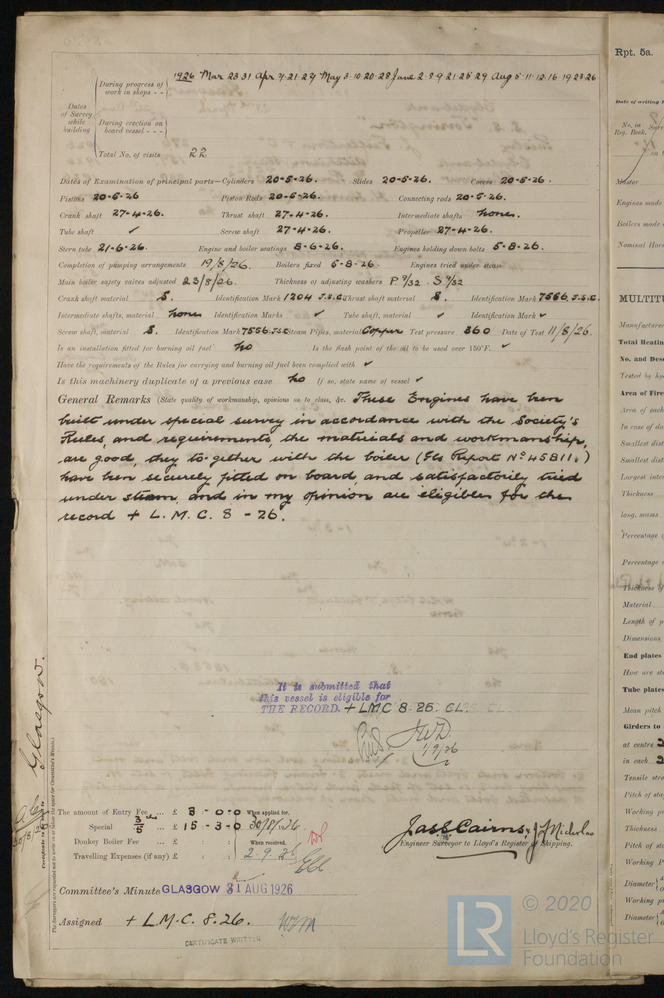 1926 Mar 23 31 Apr 7.21.27 May 3.10.20.28 June 2.8.9.21.25.29 Aug 5.11.12.16 19 23.26
Dates of Survey while building
During progress of work in shops - -
During erection on board vessel - - -
Total No. of visits 22
Dates of Examination of principal parts—Cylinders 20-5-26. Slides 20-5-26. Covers 20-5-26.
Pistons 20-5-26 Piston Rods 20-5-26. Connecting rods 20-5-26.
Crank shaft 27-4-26. Thrust shaft 27-4-26. Intermediate shafts none.
Tube shaft ✓ Screw shaft 27-4-26. Propeller 27-4-26.
Stern tube 21-6-26. Engine and boiler seatings 8-6-26. Engines holding down bolts 5-8-26.
Completion of pumping arrangements 19/8/26. Boilers fixed 5-8-26. Engines tried under steam
Main boiler safety valves adjusted 23/8/26. Thickness of adjusting washers P 9/32 S 9/32
Crank shaft material S. Identification Mark 1204 J.S.C. Thrust shaft material S. Identification Mark 7556.J.S.C.
Intermediate shafts, material none Identification Marks ✓ Tube shaft, material ✓ Identification Mark ✓
Screw shaft, material S. Identification Mark 7556.JSC Steam Pipes, material Copper Test pressure 360 Date of Test 11/8/26.
Is an installation fitted for burning oil fuel no Is the flash point of the oil to be used over 150°F. ✓
Have the requirements of the Rules for carrying and burning oil fuel been complied with ✓
Is this machinery duplicate of a previous case no If so, state name of vessel ✓
General Remarks (State quality of workmanship, opinions as to class, &c. These Engines have been
built under special survey in accordance with the Society's
Rules, and requirements, the materials and workmanship,
are good, they to-gether with the boiler (Gls Report No 45811.)
have been securely fitted on board, and satisfactorily tried
under steam, and in my opinion are eligible for the
record + L.M.C. 8 - 26.
It is submitted that
this vessel is eligible for
THE RECORD. + LMC 8.26. CL.
1/9/26
The amount of Entry Fee ... £ 3-0-0 When applied for,
Special £ 15-3-0 30/8/26
Donkey Boiler Fee ... £ When received,
Travelling Expenses (if any) £ 2.9.26
Jas S Cairns
Engineer Surveyor to Lloyd's Register of Shipping.
Committee's Minute GLASGOW 31 AUG 1926
Assigned + L.M.C. 8.26.
CERTIFICATE WRITTEN
Glasgow.
Rpt. 5a.
Date of writing
No. in
Reg. Book.
Master
Engines made
Boilers made
Nominal Hors
MULTITU
Manufacturer
Total Heating
No. and Desc
Tested by hy
Area of Fire
Area of each
In case of do
Smallest dist
Smallest dist
Largest inter
Thickness
long. seams
Percentage
Percentage
Thickness of
Material
Length of p
Dimensions
End plates
How are sta
Tube plates
Mean pitch
Girders to
at centre
in each
Tensile stre
Pitch of stay
Working pr
Thickness
Pitch of sta
Working P
Diameter
Working pr
Diameter
LR
© 2020
Lloyd's Register
Foundation